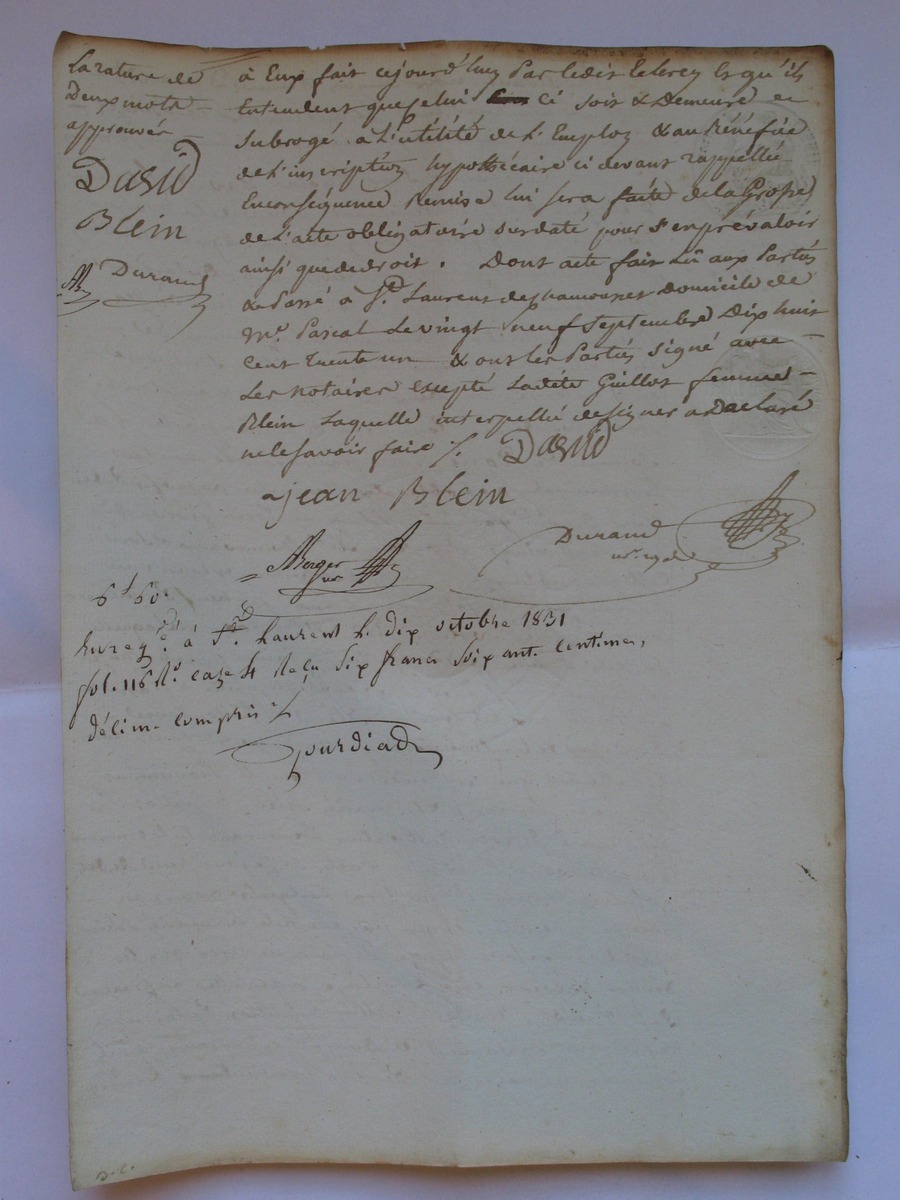 La rature de
Deux mots
approuvée
David
Blein
Durand
à Eux fait cejourd'huy Par ledit Leleroy Et qu'ils
Entendent que celui ci soit & Demeure
Subrogé à L'utilité de L'Employ & au Bénéfice
de L'inscription hypothécaire ci devant rappellée
En conséquence Remise lui sera faite de la Grosse
de L'acte obligatoire surdaté pour s'en prévaloir
ainsi que de droit. Dont acte fait Lû aux Parties
& Passé à St. Laurent de chamousset Domicile de
Me. Pascal Le vingt neuf Septembre Dix huit
Cent trente un & ont les Parties signé avec
Les notaires excepté Ladite Guillot femme
Blein Laquelle interpellée de signer a Declaré
ne le savoir faire /. David
jean Blein
Durand
nre. royal
Berger
nre
6f 60c
Enregé. à St. Laurent le dix octobre 1831
fol. 116 Ro. caze 4 Reçu Six francs Soixante Centimes,
décime compris
Gourdiad